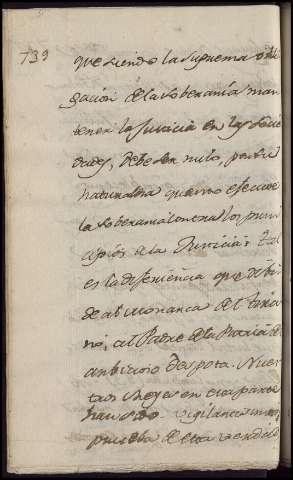 739
que siendo la suprema obli
gacion de la soberanía man
tener la Justicia en las Socie
dades, debe ser nulo, por su
naturaleza quanto efectue
la soberania contra los prin
cipios de la Justicia: Tal
es la diferiencia que dibi
de al Monarca del tira
no, al Padre de la Patria del
ambicioso despota. Nues
tros Reyes en esta parte
han sido vigilantisimos,
prueba de esta verdad